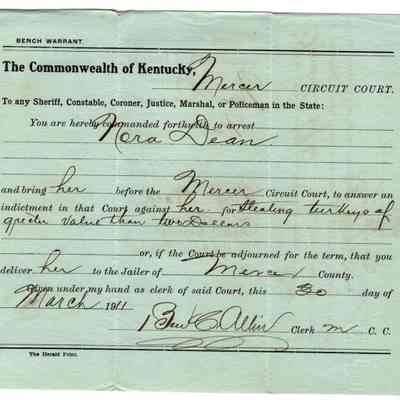 BENCH WARRANT.
The Commonwealth of Kentucky,
Mercer CIRCUIT COURT.
To any Sheriff, Constable, Coroner, Justice, Marshal, or Policeman in the State:
You are hereby commanded forthwith to arrest
Nora Dean.
and bring her before the Mercer Circuit Court, to answer an
indictment in that Court against her for Stealing turkeys of
greater value than two Dollars
or, if the Court be adjourned for the term, that you
deliver her to the Jailer of Mercer County.
Given under my hand as clerk of said Court, this 30 day of
March 1911
Ben C. Allin Clerk M C. C.
The Herald Print.